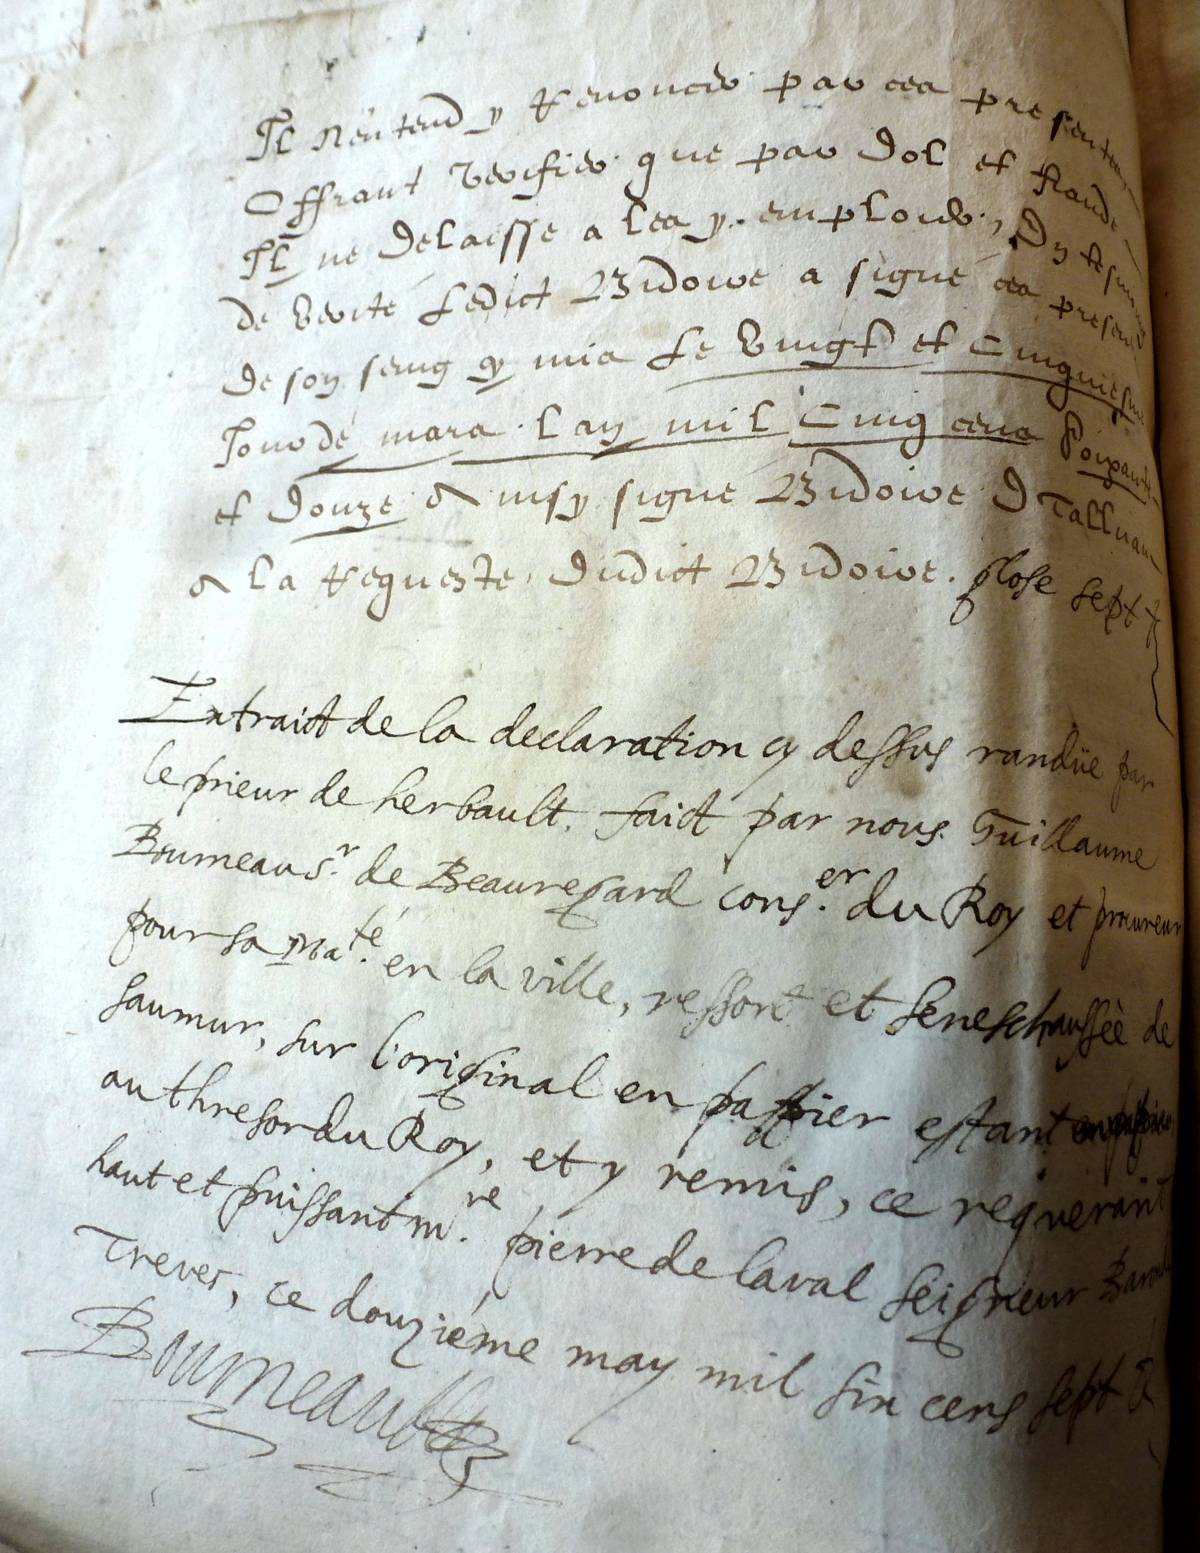 Il nentend y renoncer par ces presentes
Offrant verifier que par dol et fraude
Il ne delaisse a les y emploier, En tesmoing
de verité Ledict Bidoire a signé ces presen
de son seing cy mis Le vingt et Cinquiesme
Jour de mars lan mil Cinq cens soixante
et douze & ainsy signé Bidoire
a la requeste dudict Bidoire. glose sept
Extraict de la declaration cy dessus randüe par
le prieur de herbault. faict par nous Guillaume
Bourneau Sr. de Beauregard conser. du Roy et procureur
pour sa Maté. en la ville, ressort et seneschaussée de
saumur, sur l'original en pappier estant
au thresor du Roy, et y remis, ce requerant
haut et puissant mre. pierre de laval seigneur Baron
Treves, ce douziéme may mil six cens sept
Bourneau